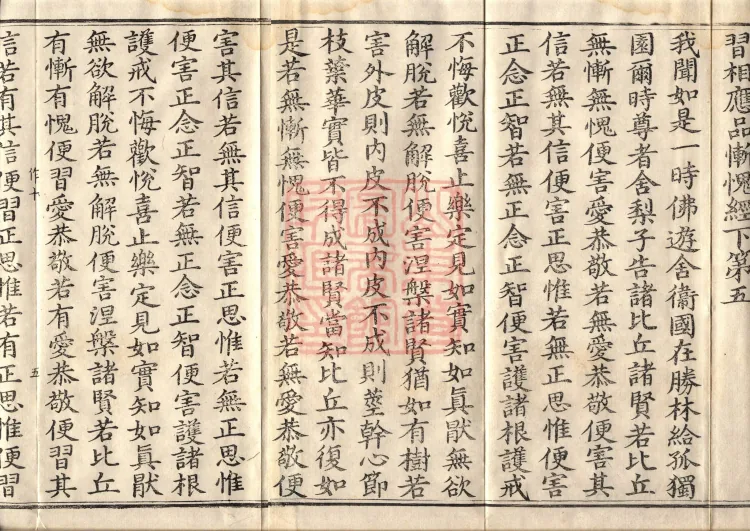 習相應品慚愧經下第五
我聞如是一時佛遊舍衞國在勝林給孤獨
園爾時尊者舍梨子告諸比丘諸賢若比丘
無慚無愧便害愛恭敬若無愛恭敬便害其
信若無其信便害正思惟若無正思惟便害
正念正智若無正念正智便害護諸根護戒
不悔歡悅喜止樂定見如實知如真厭無欲
解脫若無解脫便害涅槃諸賢猶如有樹若
害外皮則內皮不成內皮不成則莖幹心節
枝葉華實皆不得成諸賢當知比丘亦復如
是若無慚無愧便害愛恭敬若無愛恭敬便
害其信若無其信便害正思惟若無正思惟
便害正念正智若無正念正智便害護諸根
護戒不悔歡悅喜止樂定見如實知如真厭
無欲解脫若無解脫便害涅槃諸賢若比丘
有慚有愧便習愛恭敬若有愛恭敬便習其
作十 五
信若有其信便習正思惟若有正思惟便習